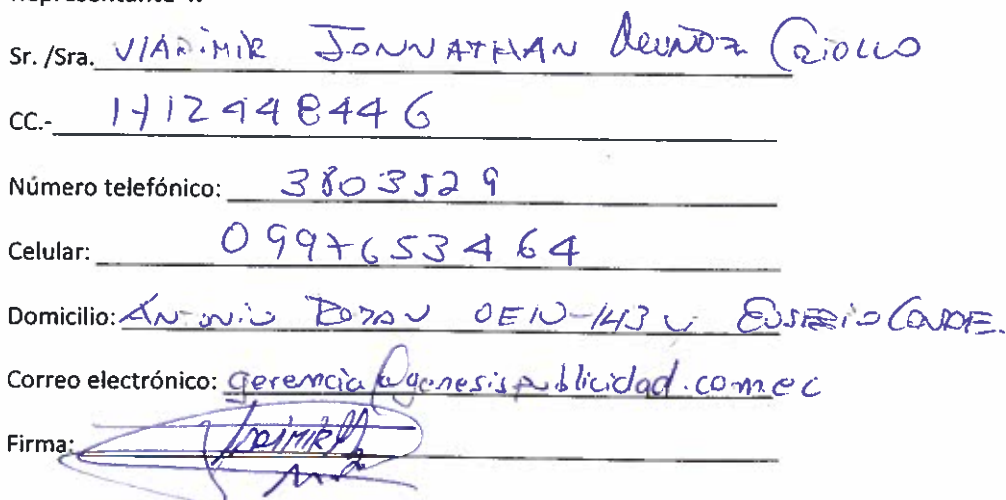 Sr. /Sra. VlADiMiR JONNATHAN MUÑOZ CRiOLLO
CC.- 1712448446
Número telefónico: 3803529
Celular: 0997653464
Domicilio: ANTONIO OE10-143 y EUSEBiO CONDE.
Correo electrónico: gerencia@genesispublicidad.com.ec
Firma: